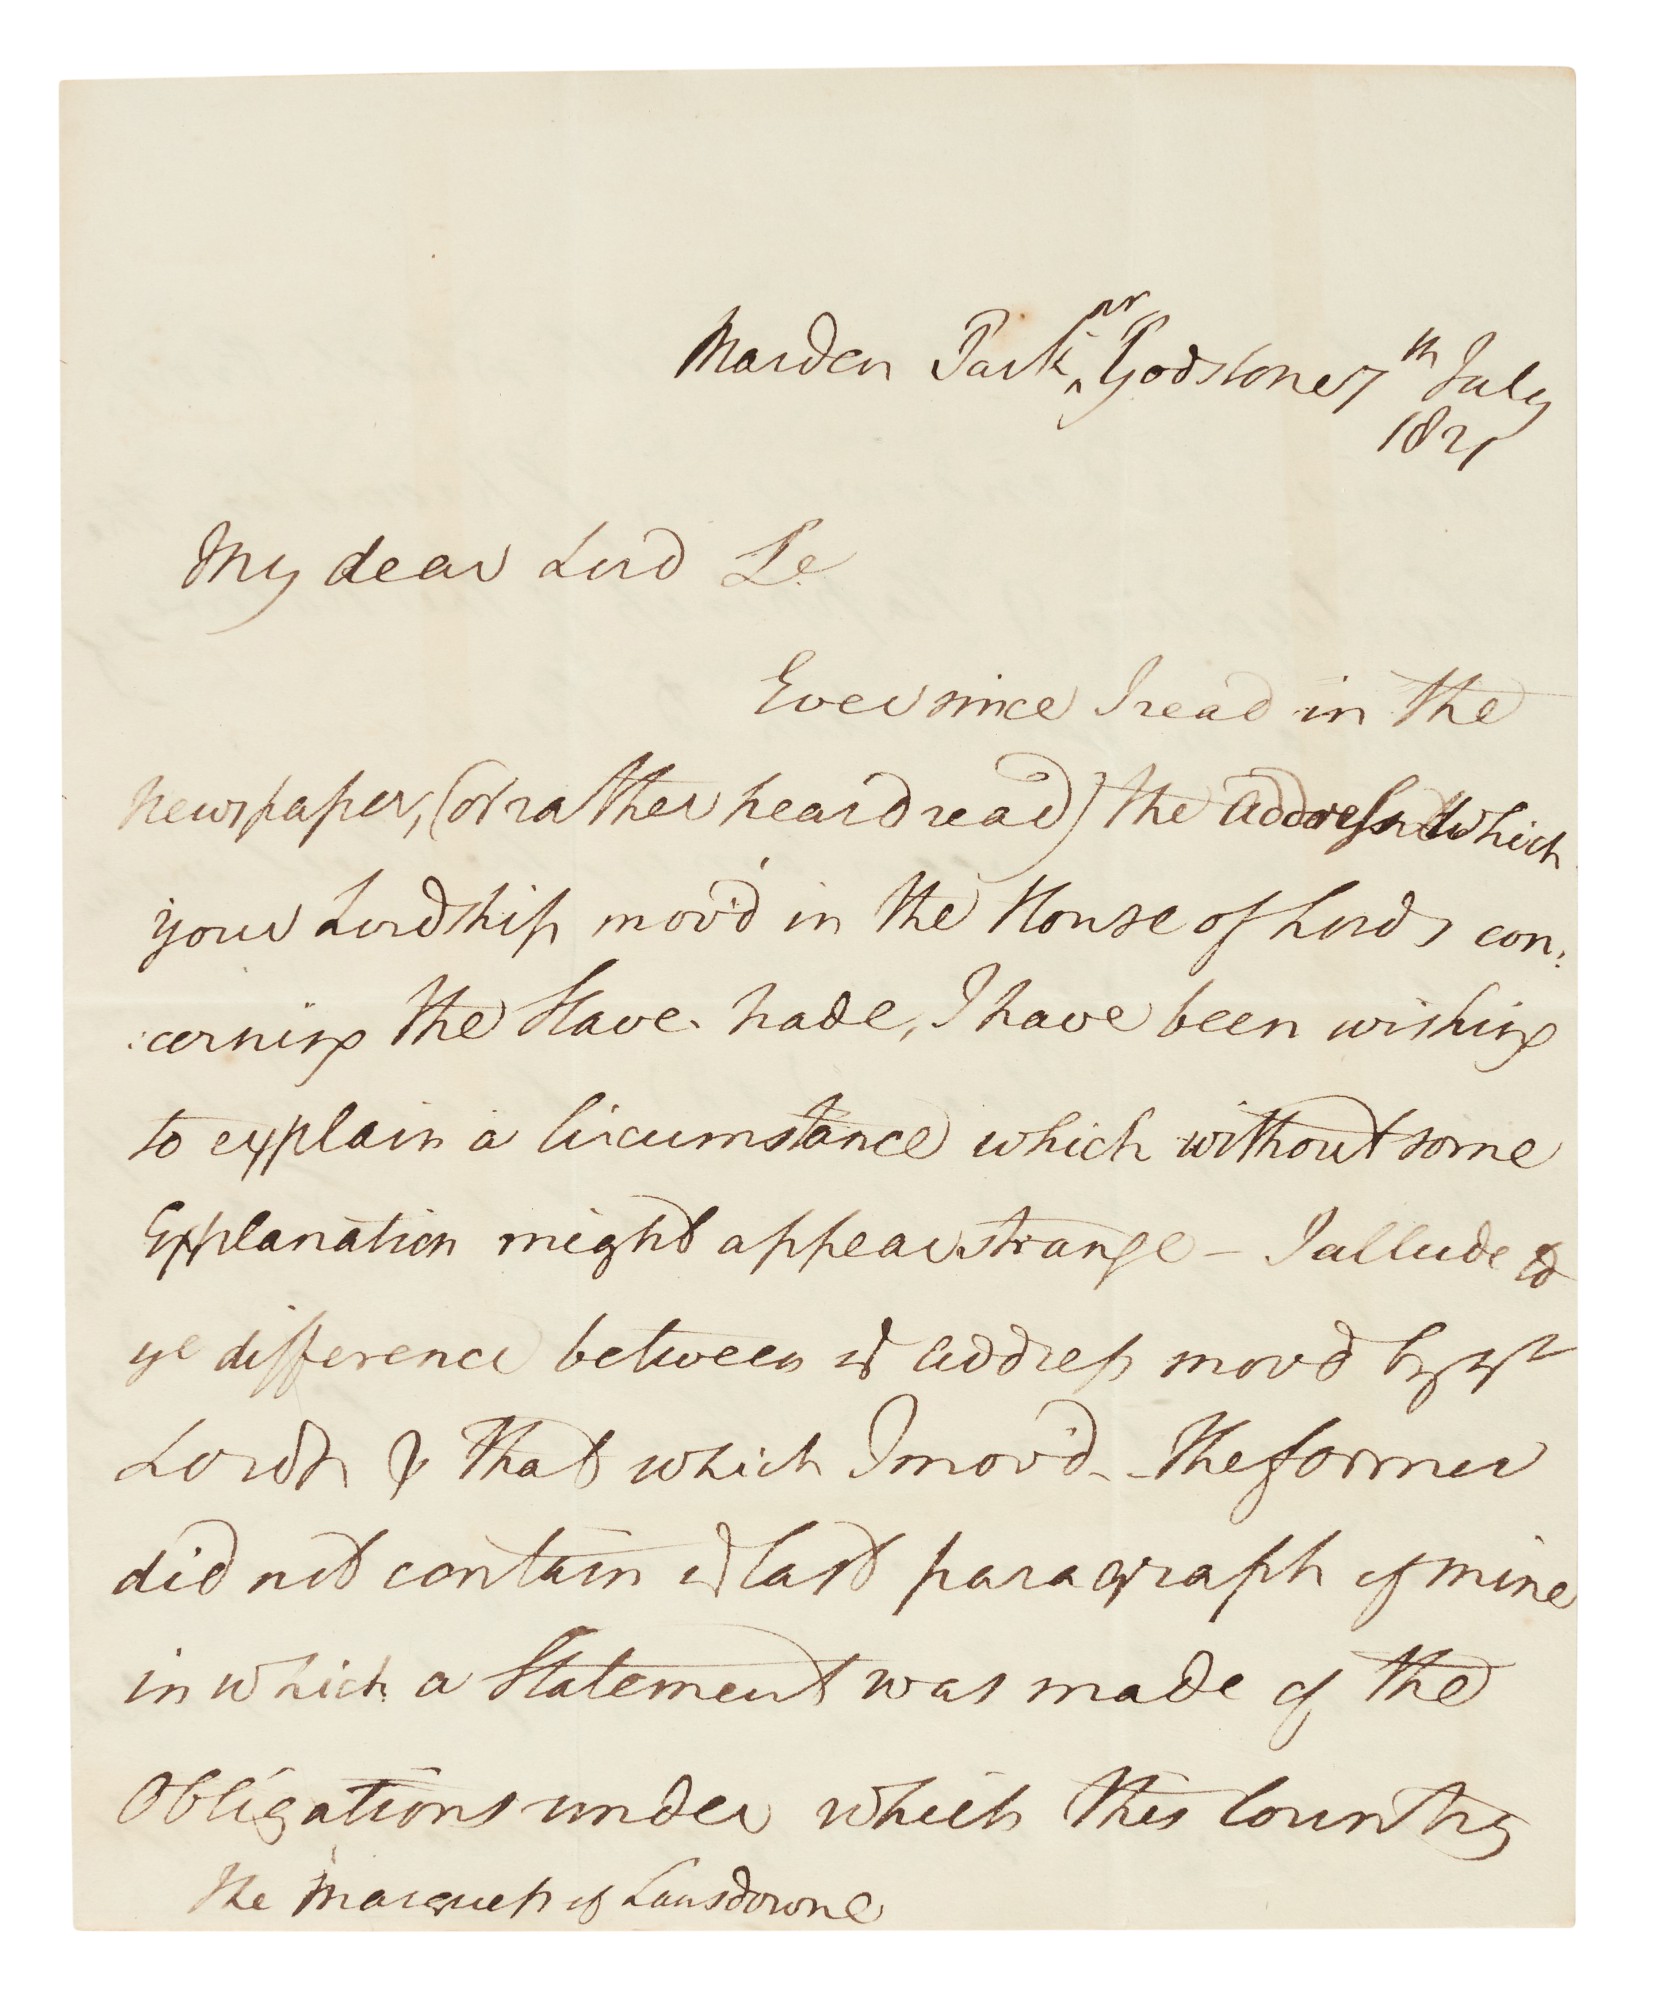 Marden Park nr Godstone 7th July
1821
My dear Lord Le
Ever since I read in the
Newspaper, (or rather heard read) the Address which
your Lordship mov'd in the House of Lords con:
:cerning the Slave trade, I have been wishing
to explain a Circumstance which without some
Explanation might appear strange - I allude to
ye difference between ye Address mov'd by yr
Lordp & that which I mov'd - The former
did not contain ye last paragraph of mine
in which a Statement was made of the
Obligations under which this Country
The Marquess of Lansdowne